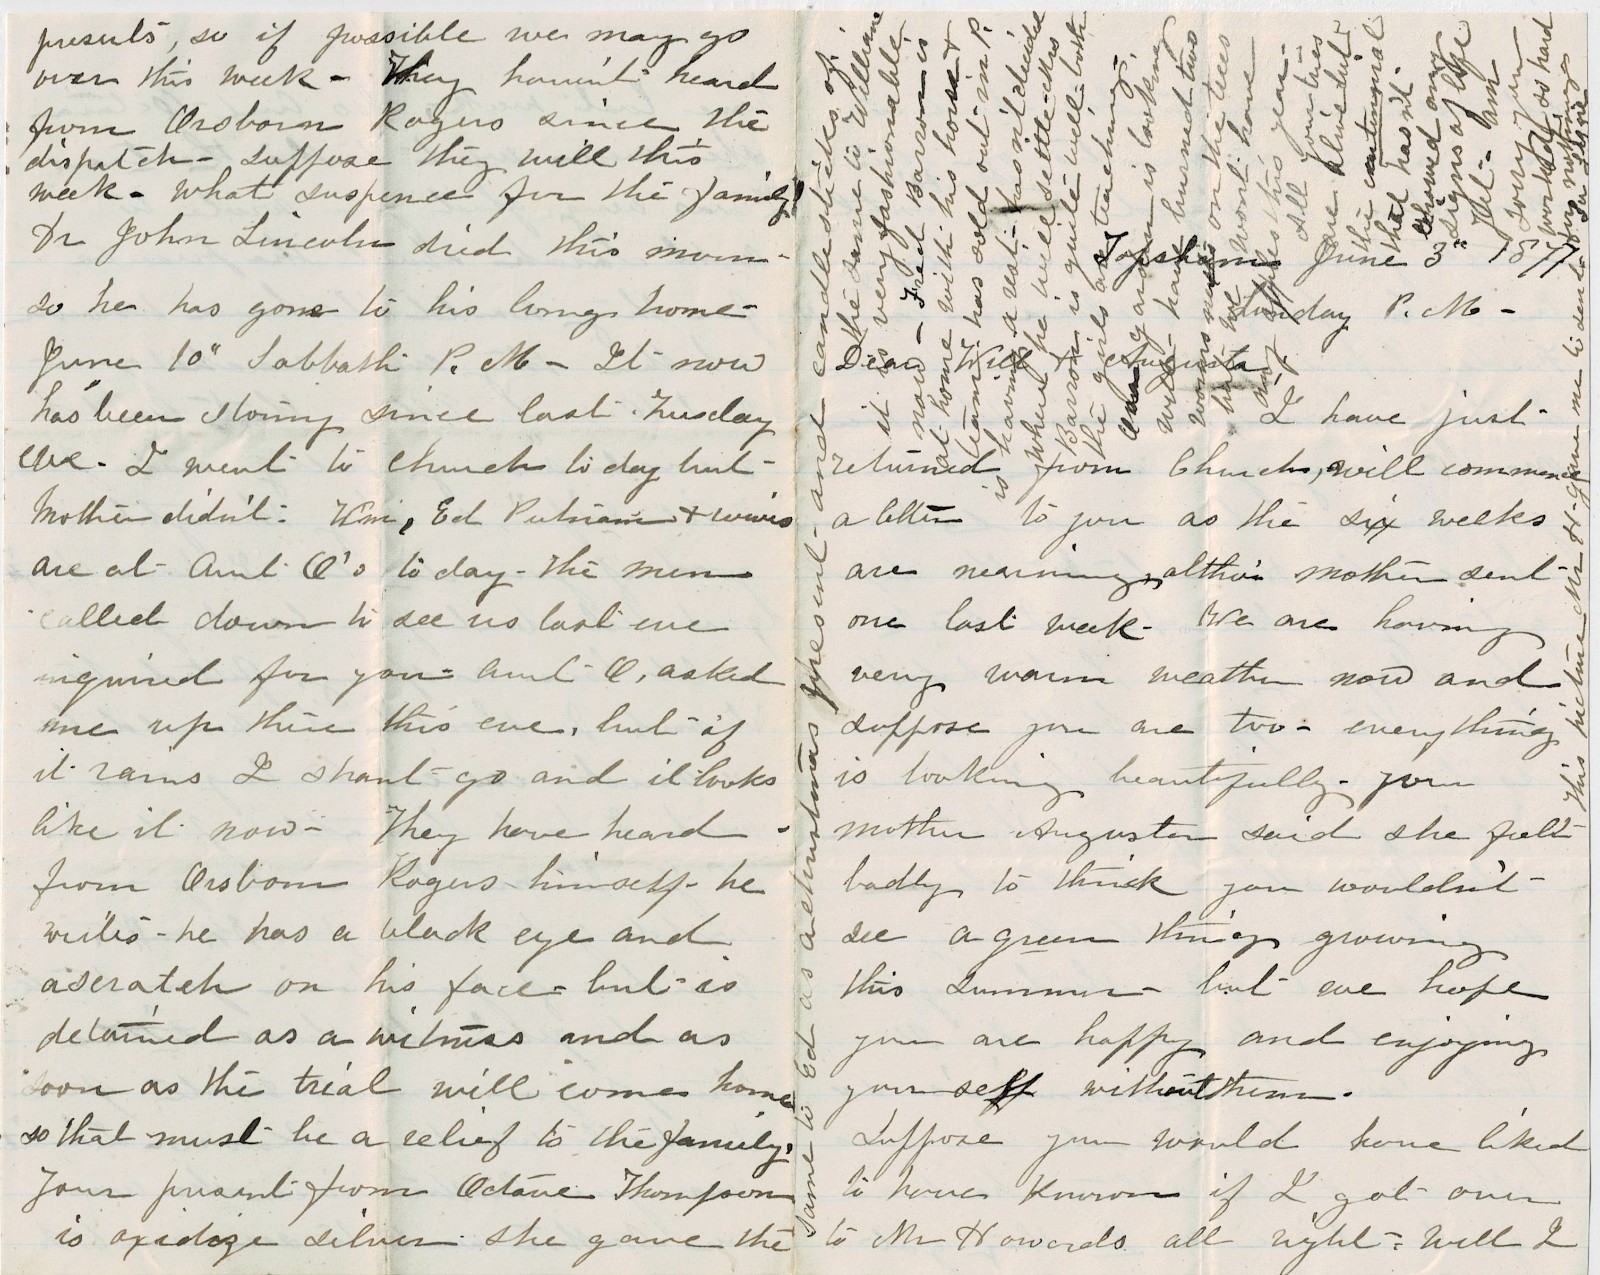 presents, so if possible we may go
over this week - They havn't heard
from Orsborn Rogers since the
dispatch - suppose they will this
week - what suspence for the family
Dr John Lincoln died this morn-
so he has gone to his long home -
June 10" Sabbath P. M - It now
has been storing since last Tuesday
eve - I went to church to day but
Mother didn't. Kim, Ed Putnam + wives
are at Aunt O's to day - the men
called down to see us last eve
inquired for you - Aunt O, asked
me up there this eve, but if
it rains I shant go and it looks
like it now - They have heard
from Orsborn Rogers himself - he
writes - he has a black eye and
a scratch on his face - but is
detained as a witness and as
soon as the trial will come home
so that must be a relief to the family.
Your present from Octave Thompson
is oxidize silver she gave the
same to Ed as a christmas present - and candlesticks of
the same to William
it is very fashionable
now - Fred Barron is
at home with his horse +
team has sold out in P.
is having a rest - hasn't decided
where he will settle -
Barron is quite well - both
the girls are teaching -
our garden is looking
well have burned two
worms nests on the trees
but we wont have
any apples this year.
All your
are alive but
the centennial
that hasn't
showed any
signs of life
yet - Am
sorry you
work so hard
This picture Mr H - gave me to send you
Topsham June 3" 1877
Sunday P. M -
Dear Will + Augusta,
I have just
returned from Church, will commence
a letter to you as the six weeks
are nearing, altho' mother sent
one last week - We are having
very warm weather now and
suppose you are too - everything
is looking beautifully - your
mother Augusta said she felt
badly to think you wouldn't
see a green thing growing
this summer - but we hope
you are happy and enjoying
yourself without them.
Suppose you would have liked
to have known if I got over
to Mr Howards all right - Well I